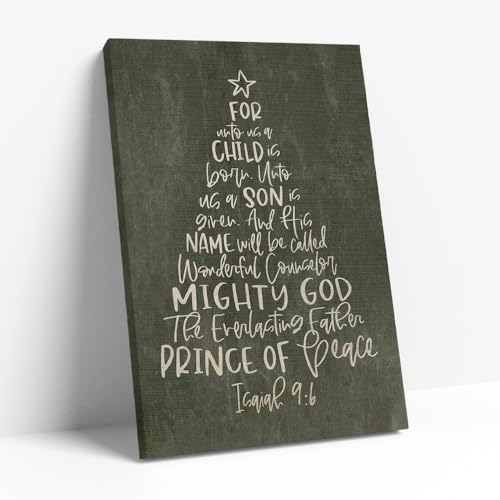 FOR
unto us a
CHILD is
born. Unto
us a SON is
given. And His
NAME will be called
Wonderful Counselor
MIGHTY GOD
The Everlasting Father
PRINCE OF Peace
Isaiah 9:6